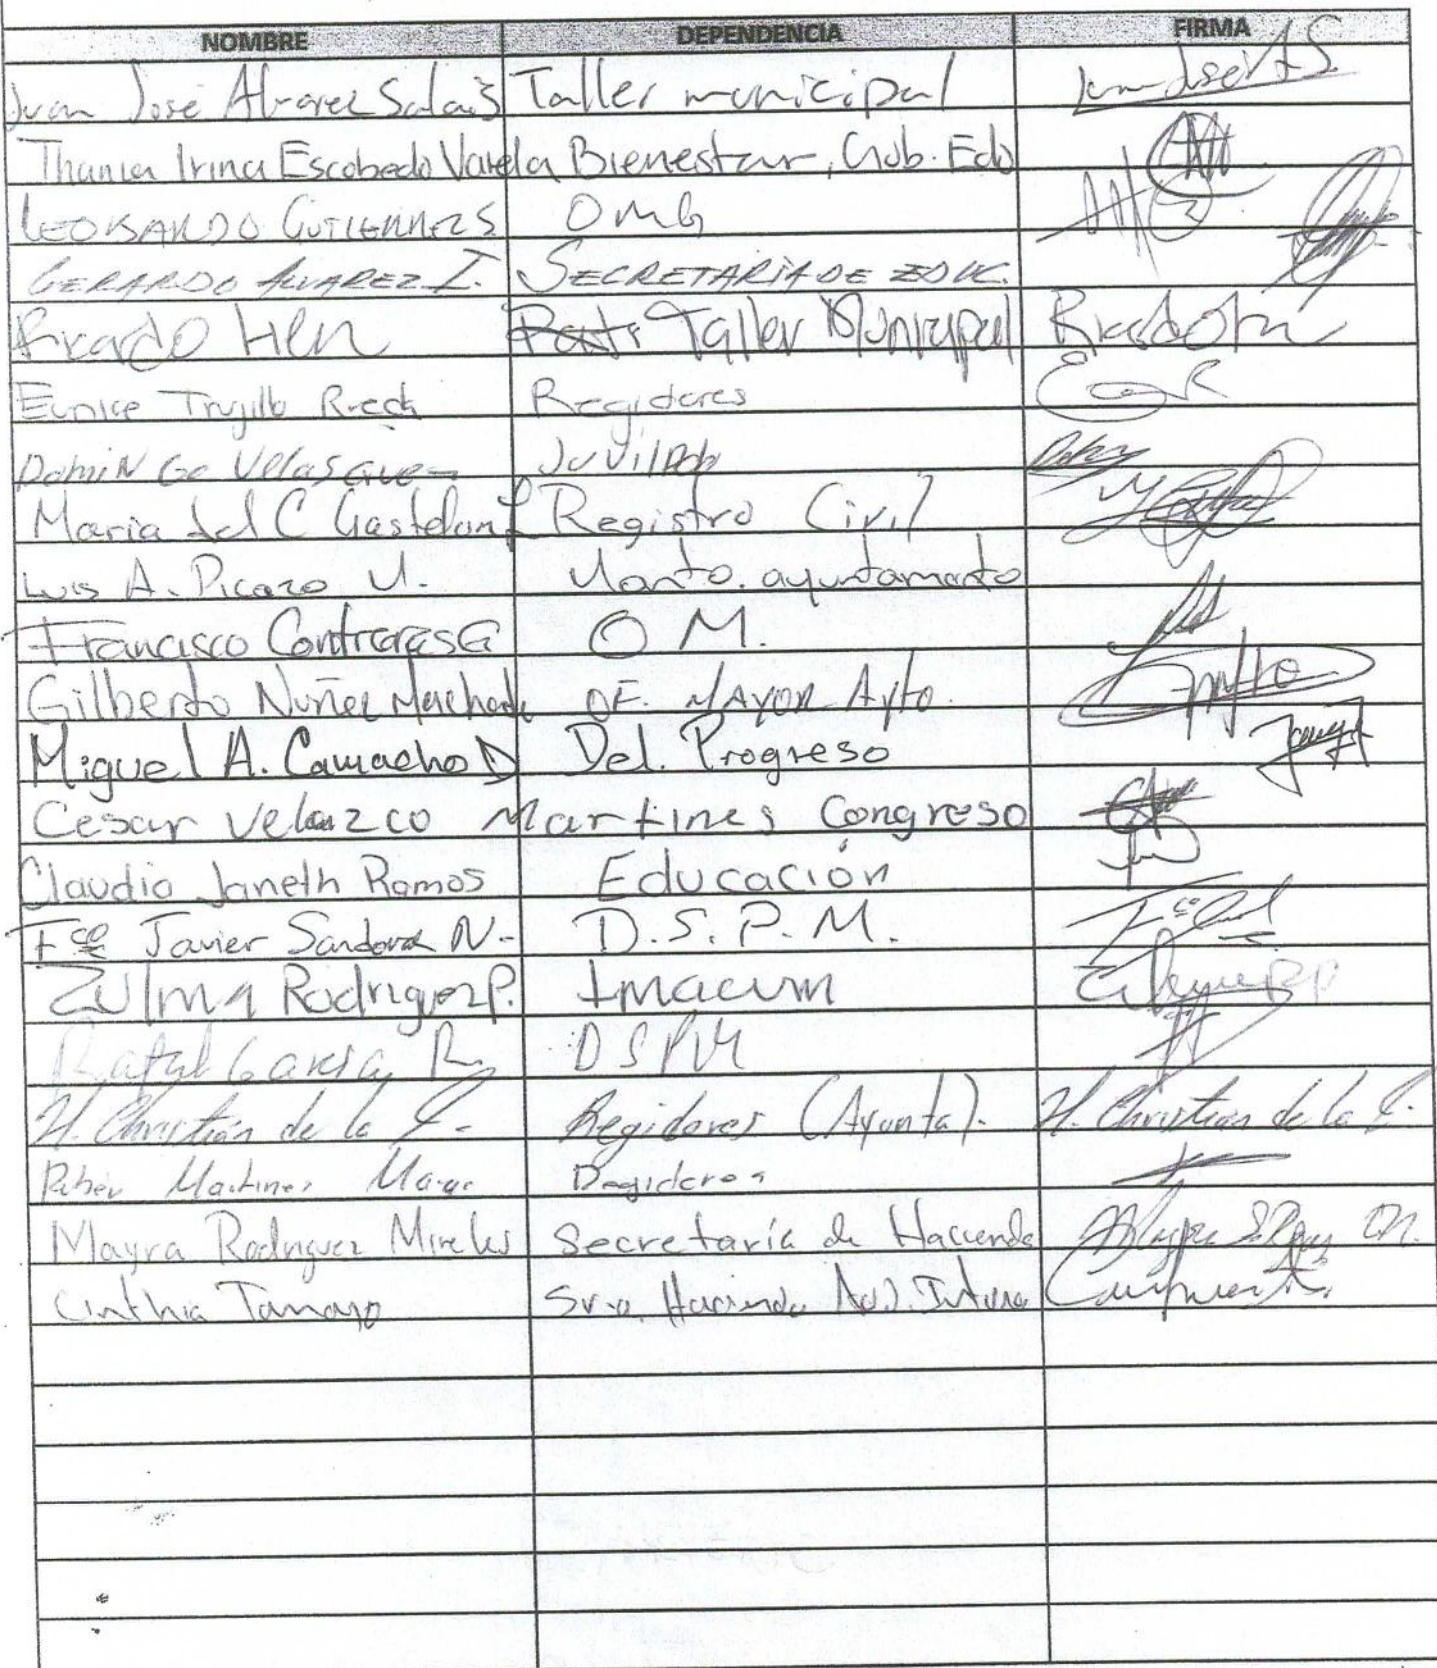 NOMBRE DEPENDENCIA FIRMA
Juan José Alvarez Salais Taller municipal
Thania Irina Escobedo Varela Bienestar, Gob. Edo
LEONARDO GUTIERRES OMG
GERARDO ALVAREZ I. SECRETARÍA DE EDUC.
Ricardo Hln Taller Municipal
Eunice Trujillo Regidores
Domingo Velasquez
Maria del C Gastelum Registro Civil
Luis A. Picazo U. Manto. ayuntamento
Francisco Contreras G O M.
Gilberto Nuñez Machado OF. MAYOR Ayto.
Miguel A. Camacho D Del. Progreso
Cesar Velazco Martines Congreso
Claudia Janeth Ramos Educación
Fco Javier Sandoval N. D.S.P.M.
Zulma Rodriguez P. Imacum
Rafael Garcia R. DSPM
H. Christian de la Regidores (Ayunta). H. Christian de la
Martinez Regidores
Mayra Rodriguez Mireles Secretaría de Hacienda
Cinthia Tamayo Hacienda